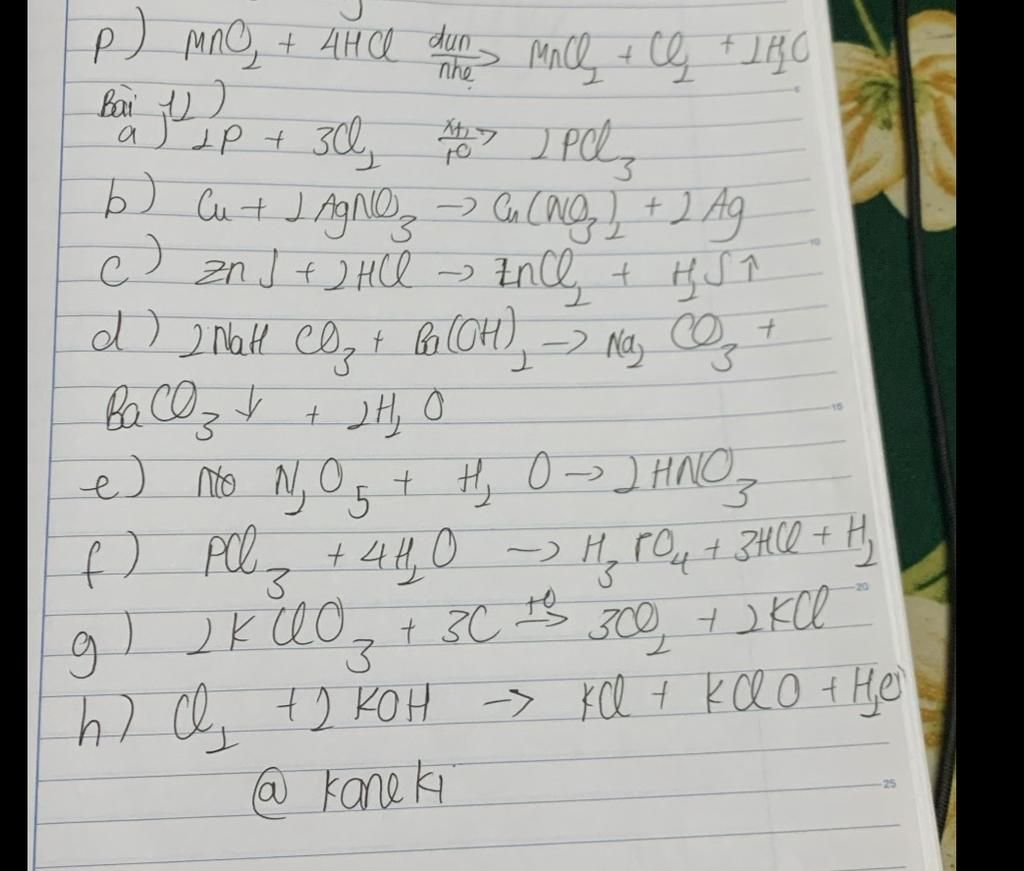 p) MnO2 + 4HCl đun nhẹ -> MnCl2 + Cl2 + 2H2O
Bài 12)
a) 2P + 3Cl2 xt, t0 -> 2PCl3
b) Cu + 2AgNO3 -> Cu(NO3)2 + 2Ag
c) ZnS + 2HCl -> ZnCl2 + H2S↑
d) 2NaHCO3 + Ba(OH)2 -> Na2CO3 +
BaCO3↓ + 2H2O
e) N2O5 + H2O -> 2HNO3
f) PCl3 + 4H2O -> H3PO4 + 3HCl + H2
g) 2KClO3 + 3C t0 -> 3CO2 + 2KCl
h) Cl2 + 2KOH -> KCl + KClO + H2O
@ kaneki